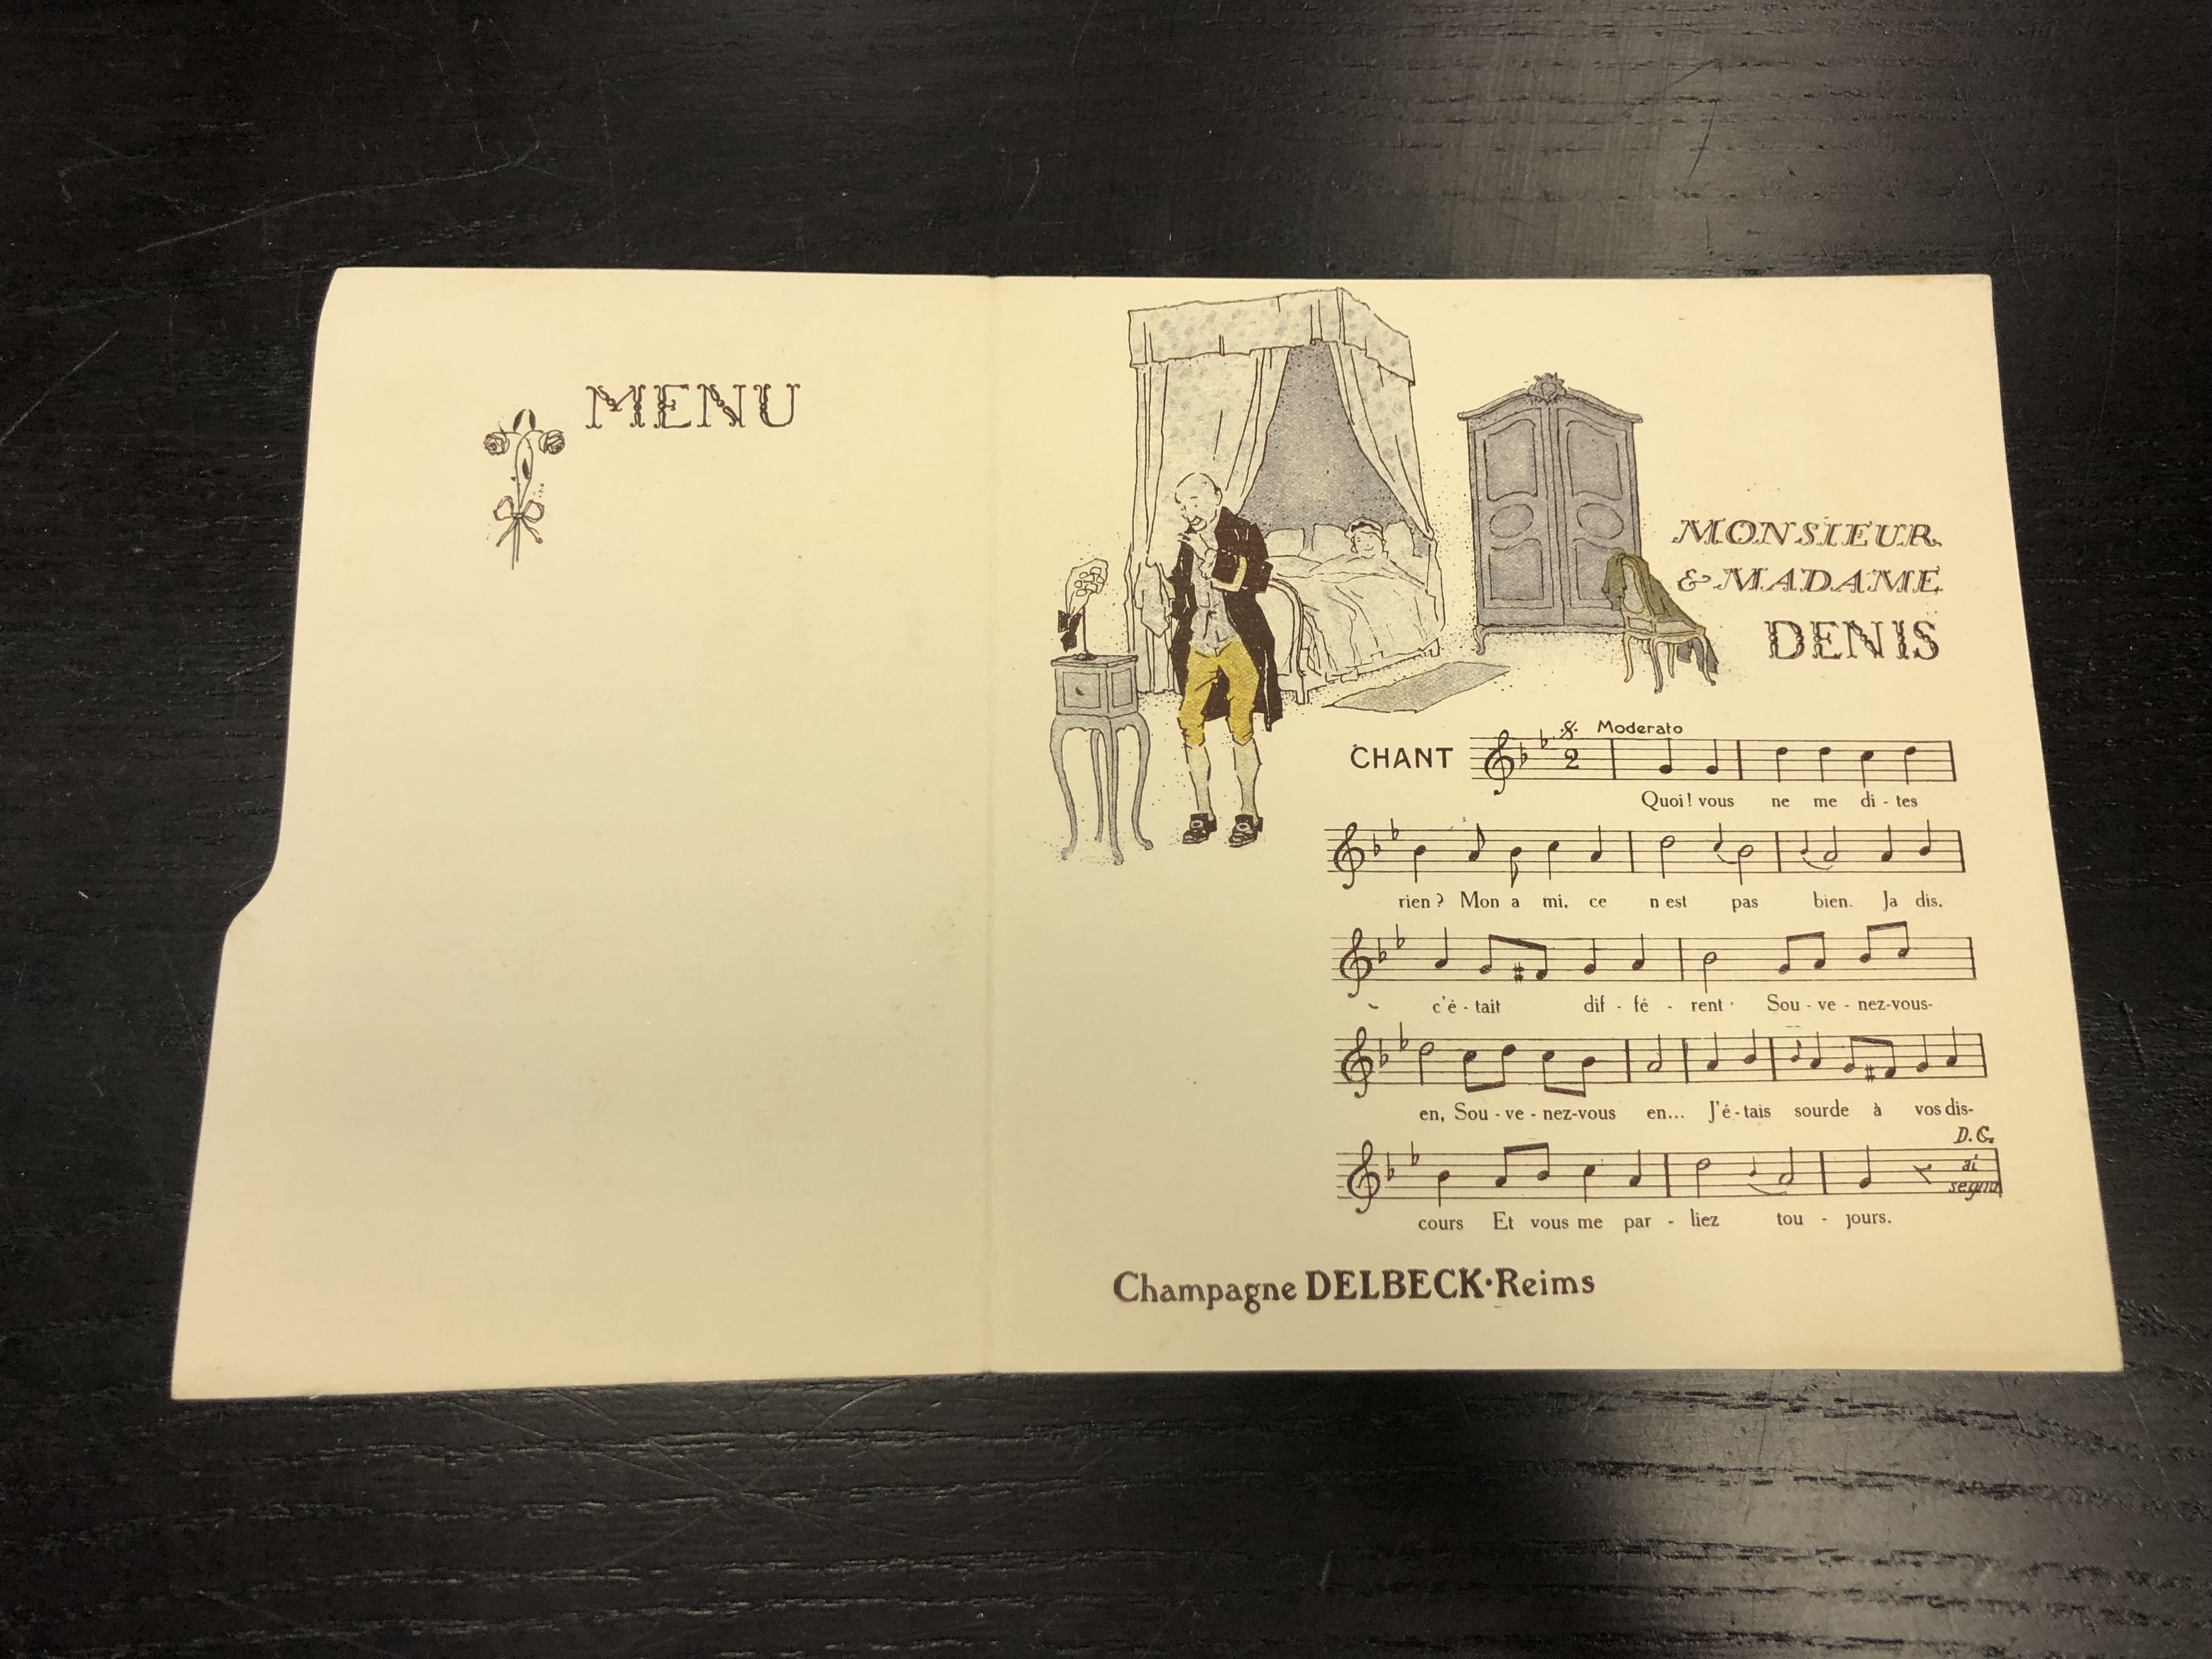 MENU
MONSIEUR
& MADAME
DENIS
Moderato
CHANT
2
Quoi! vous ne me di - tes
rien? Mon a mi. ce n est pas bien. Ja dis.
c'é - tait dif - fé - rent Sou - ve - nez-vous-
en, Sou - ve - nez-vous en... J'é - tais sourde à vos dis-
D.C.
al
segno
cours Et vous me par - liez tou - jours.
Champagne DELBECK·Reims